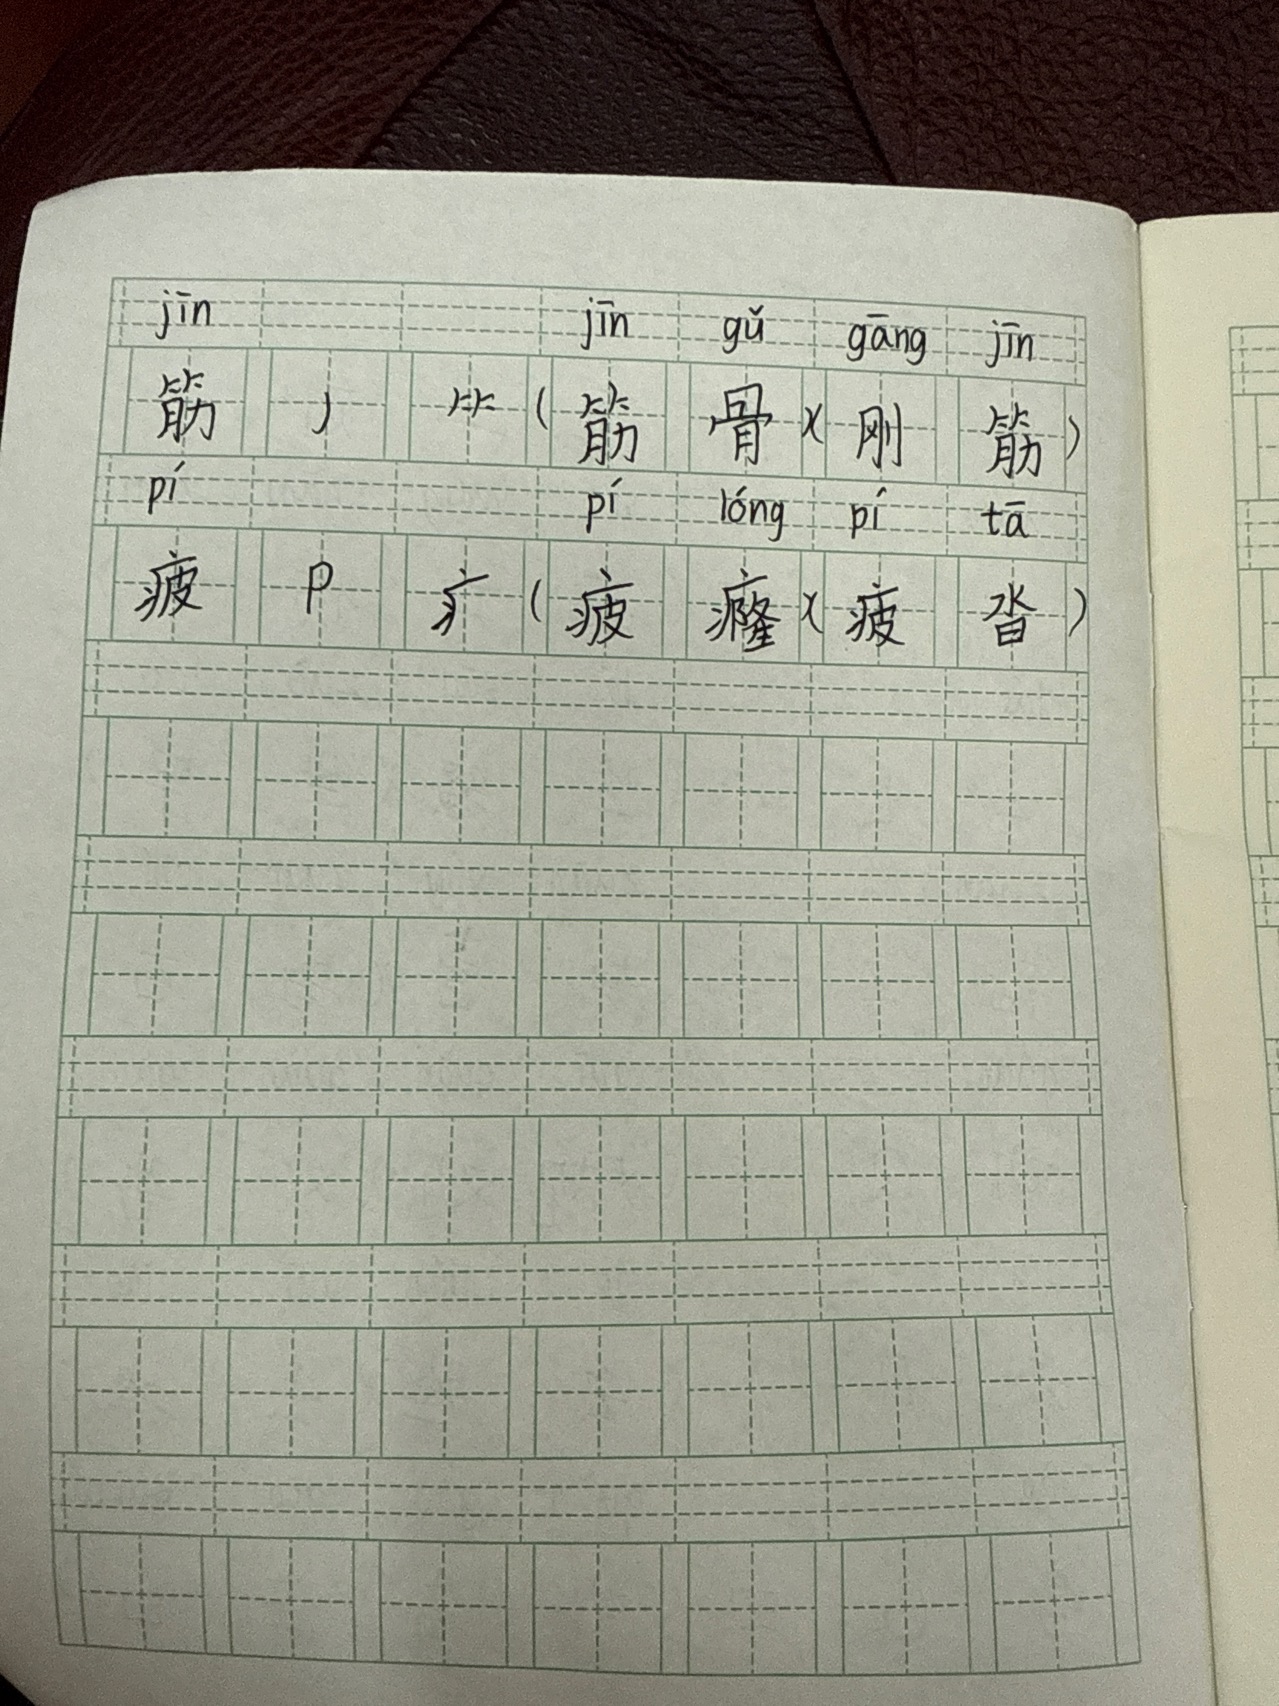 jīn jīn gǔ gāng jīn
筋 J ⺮ (筋骨)(刚筋)
pí pí lóng pí tā
疲 P 疒 (疲癃)(疲沓)